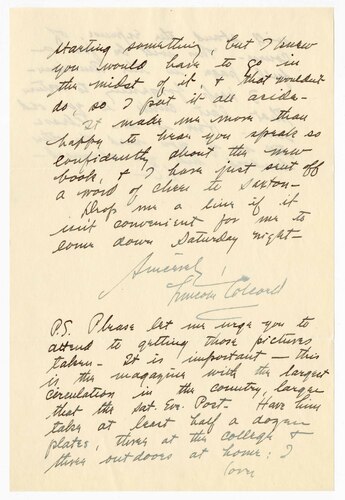 starting something, but I knew
you would have to go in
the midst of it, & that wouldn't
do so I put it all aside -
It made me more than
happy to hear you speak so
confidently about the new
book, & I have just sent off
a word of cheer to Saxton -
Drop me a line if it
isn't convenient for me to
come down Saturday night -
Sincerely,
Lincoln Colcord
P.S. Please let me urge you to
attend to getting those pictures
taken - It is important - this
is the magazine with the largest
circulation in the country, larger
that the Sat. Eve. Post - Have him
take at least half a dozen
plates, three at the college &
three outdoors at home: I